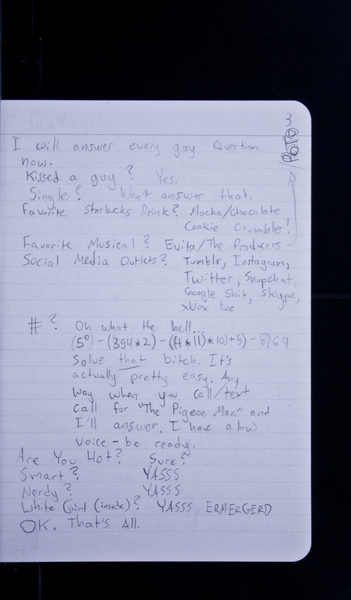 I will answer every gay question
now.
Kissed a guy? Yes.
Single? Won't answer that.
Favorite Starbucks Drink? Mocha/chocolate
Cookie Crumble!
Favorite Musical? Evita/The Producers
POTO 3
Social Media Outlets? Tumblr, Instagram,
Twitter, Snapchat,
Google Shit, Skype,
Xbox live
#? Oh what the hell...
Solve that bitch. It's
actually pretty easy. Any
way when you call/text
call for "The Pigeon Man" and
I'll answer. I have a
voice - be ready.
Are You Hot? Sure?
Smart? YASSS
Nerdy? YASSS
White Girl (inside)? YASSS ERMERGERD
OK. That's All.